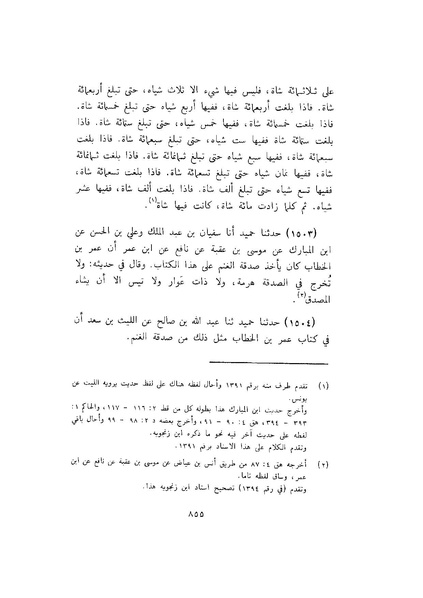 على ثلاثمائة شاة، فليس فيها شيء الا ثلاث شياه، حتى تبلغ أربعمائة
شاة. فاذا بلغت أربعمائة شاة، ففيها أربع شياه حتى تبلغ خمسمائة شاة.
فاذا بلغت خمسمائة شاة، ففيها خمس شياه، حتى تبلغ ستمائة شاة. فاذا
بلغت ستمائة شاة ففيها ست شياه، حتى تبلغ سبعمائة شاة. فاذا بلغت
سبعمائة شاة، ففيها سبع شياه حتى تبلغ ثمانمائة شاة. فاذا بلغت ثمانمائة
شاة، ففيها ثمان شياه حتى تبلغ تسعمائة شاة. فاذا بلغت تسعمائة شاة،
ففيها تسع شياه حتى تبلغ ألف شاة. فاذا بلغت ألف شاة، ففيها عشر
شياه. ثم كلما زادت مائة شاة، كانت فيها شاة(١).
(١٥٠٣) حدثنا حميد أنا سفيان بن عبد الملك وعلي بن الحسن عن
ابن المبارك عن موسى بن عقبة عن نافع عن ابن عمر أن عمر بن
الخطاب كان يأخذ صدقة الغنم على هذا الكتاب. وقال في حديثه: ولا
تُخرج في الصدقة هرمة، ولا ذات عَوار ولا تيس الا أن يشاء
المصدق(٢).
(١٥٠٤) حدثنا حميد ثنا عبد الله بن صالح عن الليث بن سعد أن
في كتاب عمر بن الخطاب مثل ذلك من صدقة الغنم.
(١) تقدم طرف منه برقم ١٣٩١ وأحال لفظه هناك على لفظ حديث يرويه الليث عن
يونس.
وأخرج حديث ابن المبارك هذا بطوله كل من قط ٢: ١١٦ - ١١٧، والحاكم ١:
٣٩٣ - ٣٩٤، هق ٤: ٩٠ - ٩١، وأخرج بعضه د ٢: ٩٨ - ٩٩ وأحال باقي
لفظه على حديث آخر فيه نحو ما ذكره ابن زنجويه.
وتقدم الكلام على هذا الاسناد برقم ١٣٩١.
(٢) أخرجه هق ٤: ٨٧ من طريق أنس بن عياض عن موسى بن عقبة عن نافع عن ابن
عمر، وساق لفظه تاما.
وتقدم (في رقم ١٣٩٤) تصحيح اسناد ابن زنجويه هذا.
٨٥٥